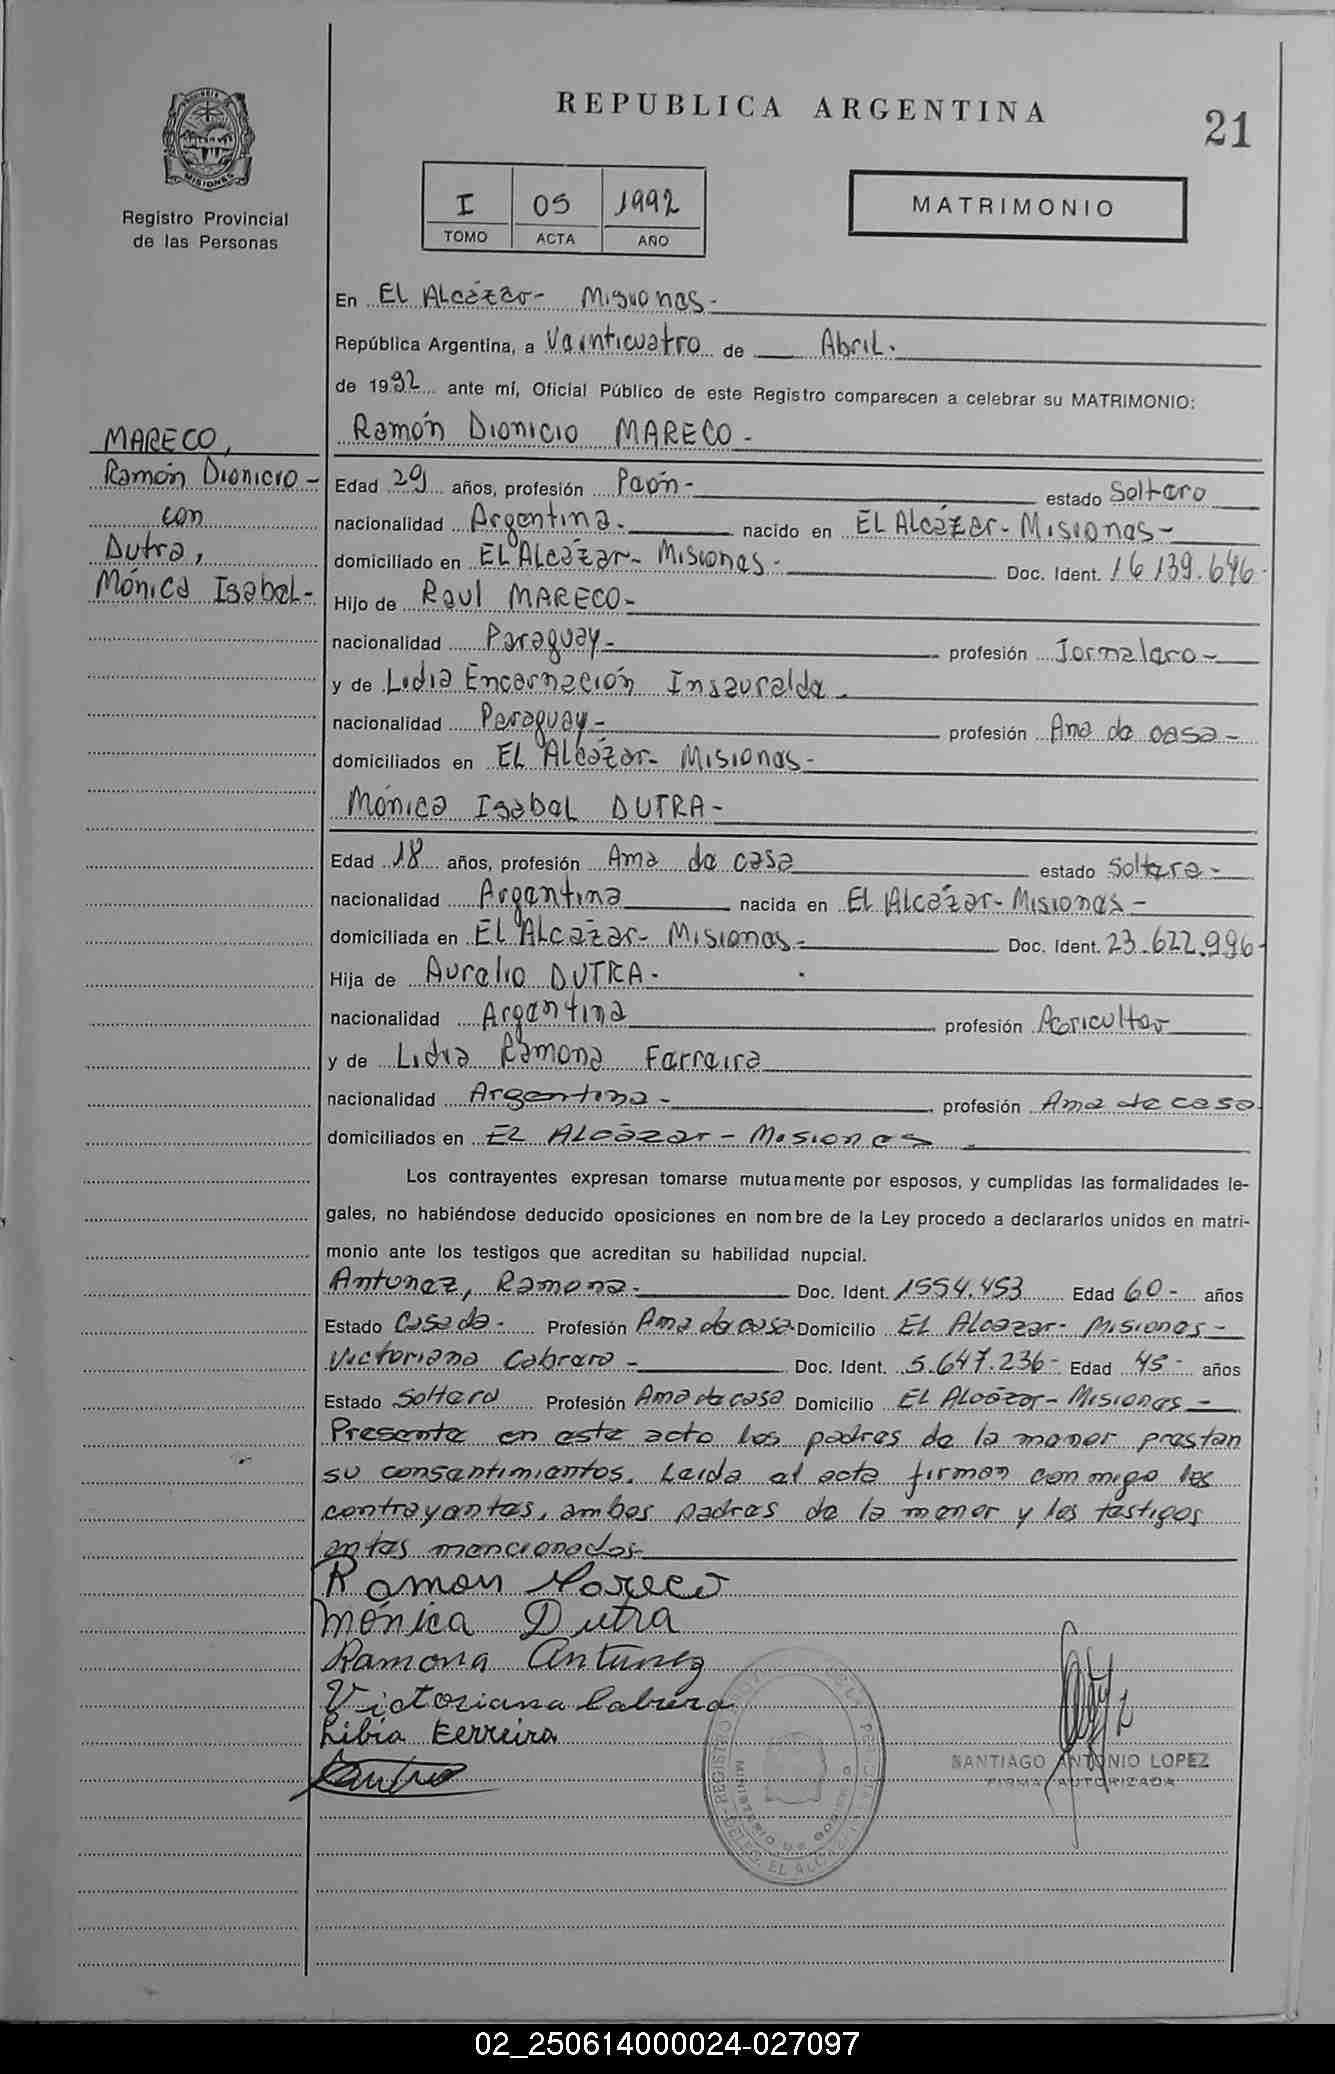 REPUBLICA ARGENTINA
21
MISIONES
Registro Provincial
de las Personas
I 05 1992
TOMO ACTA AÑO
MATRIMONIO
En El Alcázar- Misiones-
República Argentina, a Veinticuatro de Abril.
de 1992 ante mí, Oficial Público de este Registro comparecen a celebrar su MATRIMONIO:
MARECO,
Ramón Dionicio -
con
Dutra,
Mónica Isabel-
Ramón Dionicio MARECO-
Edad 29 años, profesión Peón- estado Soltero
nacionalidad Argentina- nacido en El Alcázar- Misiones-
domiciliado en El Alcázar- Misiones- Doc. Ident. 16139.646-
Hijo de Raul MARECO-
nacionalidad Paraguay- profesión Jornalero-
y de Lidia Encarnación Insauralde-
nacionalidad Paraguay- profesión Ama de casa-
domiciliados en El Alcázar- Misiones-
Mónica Isabel DUTRA-
Edad 18 años, profesión Ama de casa estado Soltera-
nacionalidad Argentina nacida en El Alcázar- Misiones-
domiciliada en El Alcázar- Misiones- Doc. Ident. 23.622.996-
Hija de Aurelio DUTRA-
nacionalidad Argentina profesión Agricultor
y de Lidia Ramona Ferreira
nacionalidad Argentina- profesión Ama de casa
domiciliados en El Alcázar- Misiones
Los contrayentes expresan tomarse mutuamente por esposos, y cumplidas las formalidades le-
gales, no habiéndose deducido oposiciones en nombre de la Ley procedo a declararlos unidos en matri-
monio ante los testigos que acreditan su habilidad nupcial.
Antunez, Ramona- Doc. Ident. 1554.453 Edad 60- años
Estado Casada- Profesión Ama de casa- Domicilio El Alcazar- Misiones-
Victoriana Cabrera- Doc. Ident. 5.647.236- Edad 45- años
Estado Soltera Profesión Ama de casa Domicilio El Alcázar- Misiones-
Presente en este acto los padres de la menor prestan
su consentimientos. Leida el acta firman conmigo los
contrayentes, ambos padres de la menor y los testigos
antes mencionados
Ramon Mareco
Mónica Dutra
Ramona Antunez
Victoriana Cabrera
Libia Ferreira
SANTIAGO ANTONIO LOPEZ
FIRMA AUTORIZADA
02_250614000024-027097